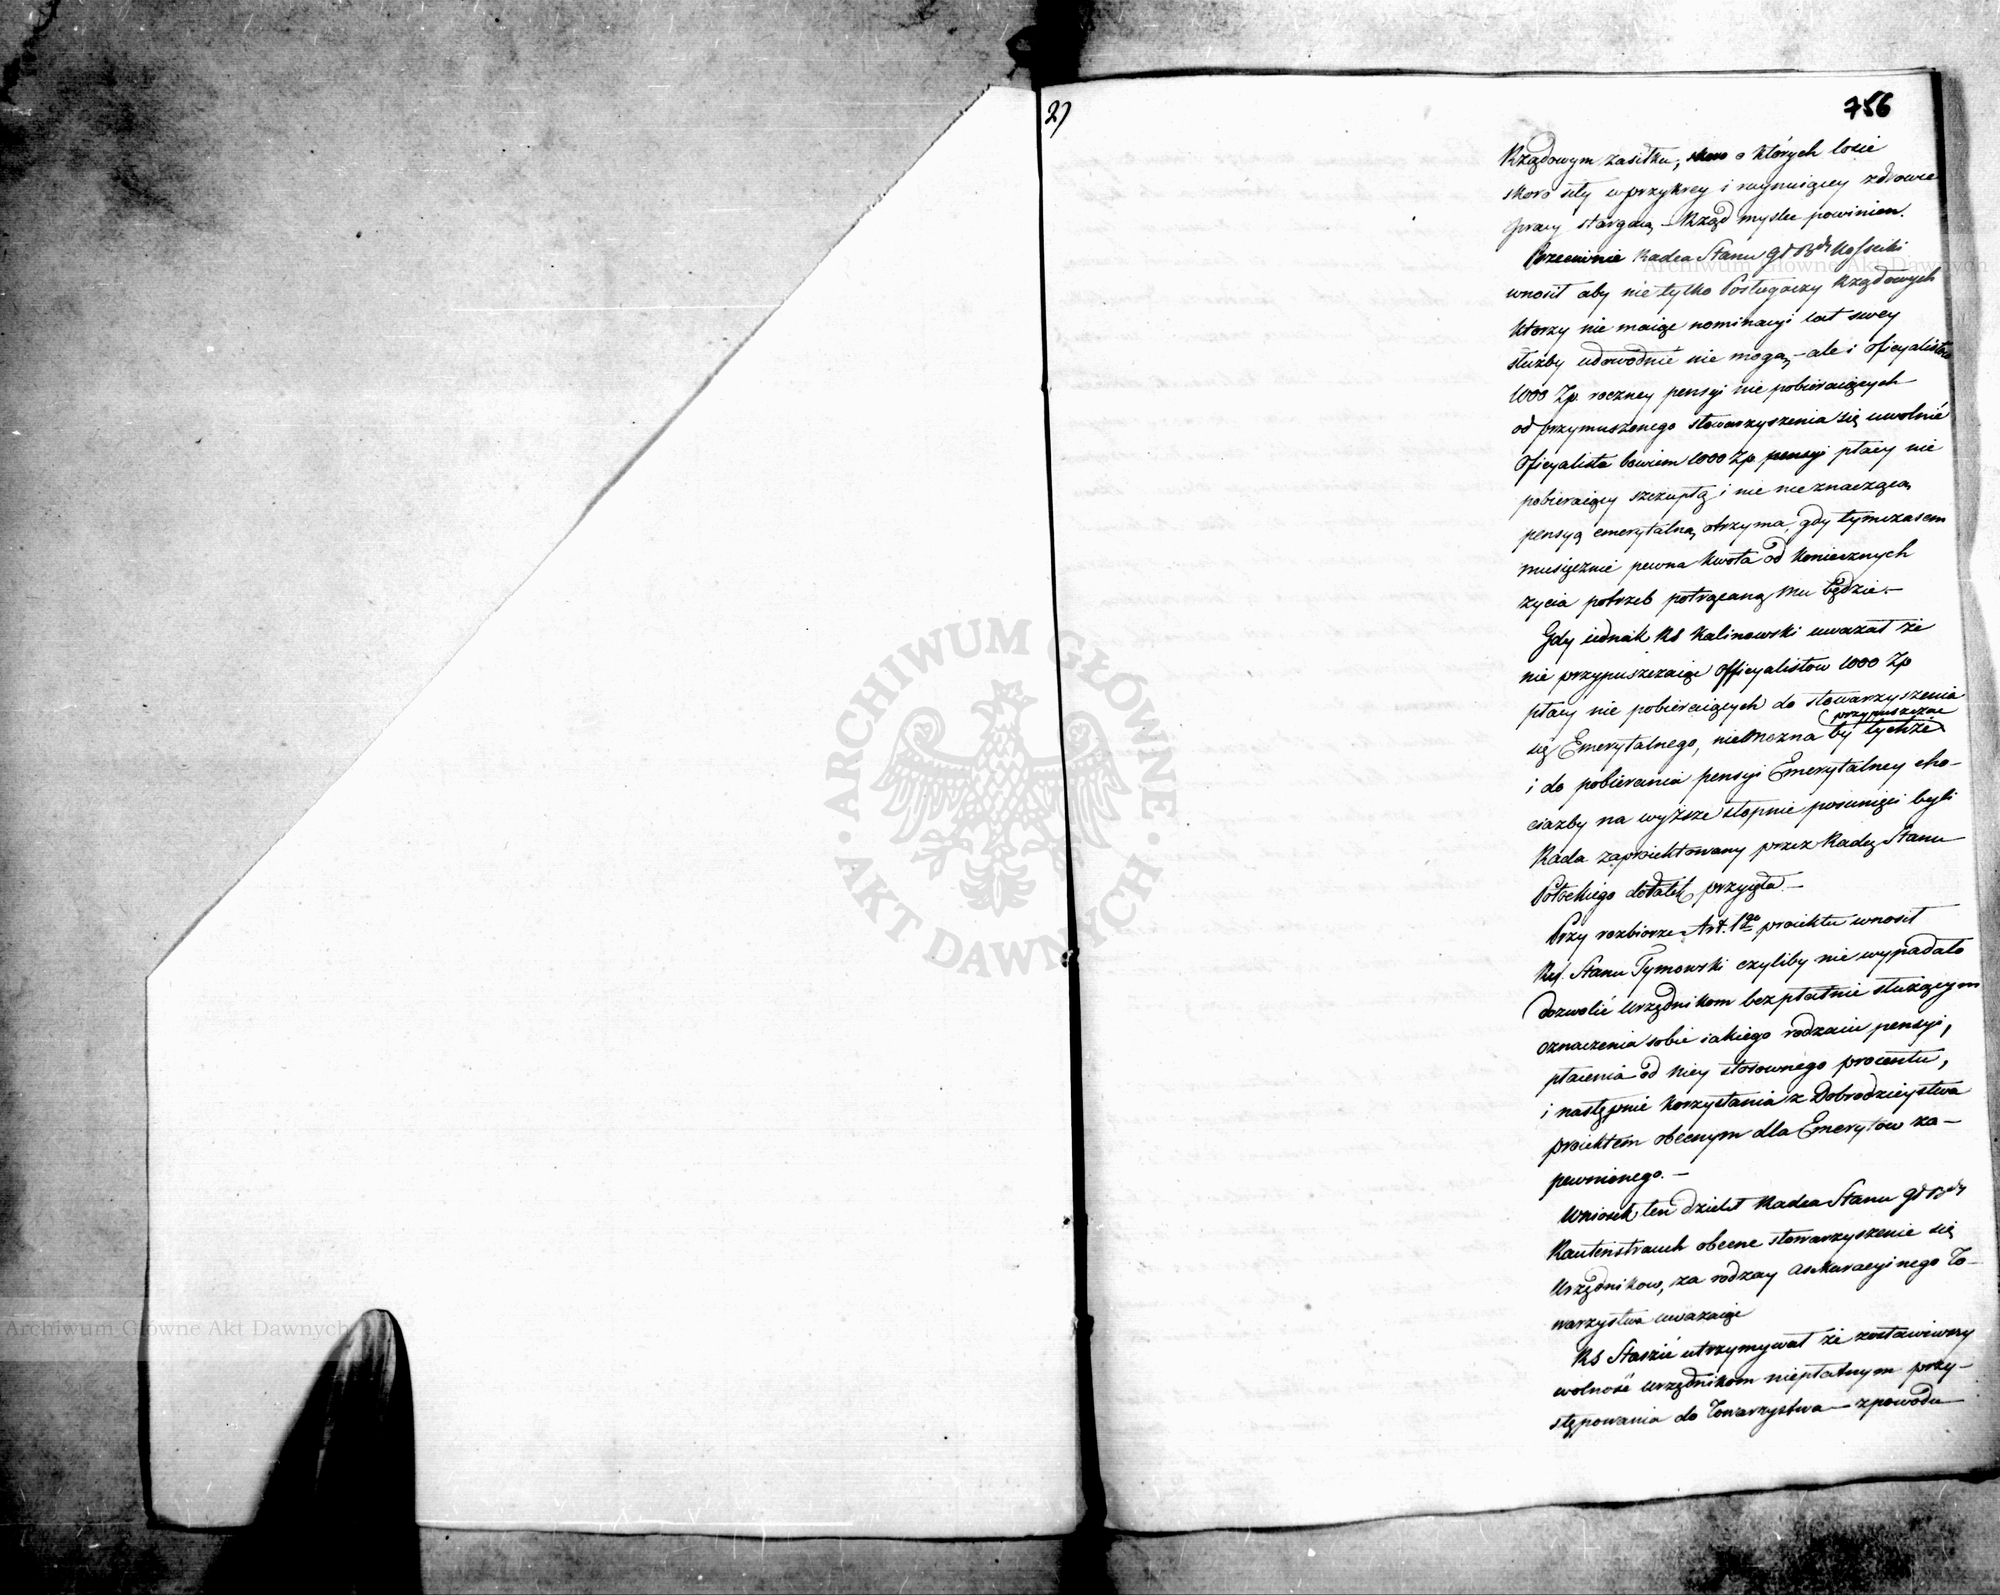 2)
756
Rządowym zasiłku, skoro o których losie
skoro siły w przykrey i ruynuiącey zdrowie
pracy stargaią – Rząd mysleć powinien.
Przeciwnie Radca Stanu Kossecki
wnosił aby nie tylko Posługaczy Rządowych
którzy nie maiąc nominacyi lat swey
służby udowodnić nie mogą, – ale i Oficyalistow
1000 Zp. roczney pensyi nie pobieraiących
od przymuszonego stowarzyszenia się uwolnić
Oficyalista bowiem 1000 Zp. pensyi płacy nie
pobieraiący szczupłą i nic nieznaczącą
pensyą emerytalną otrzyma, gdy tymczasem
miesięcznie pewna kwota od koniecznych
życia potrzeb potrącaną mu będzie. –
Gdy iednak RS Kalinowski uważał że
nie przypuszczaiąc Officyalistow 1000 Zp
płacy nie pobieraiących do stowarzyszenia
się Emerytalnego, niemożna by tychże przypuszczac
i do pobierania pensyi Emerytalney cho–
ciażby na wyższe stopnie posunięci byli
Rada zaproiektowany przez Radcę Stanu
Potockiego dodatek przyięła. –
Przy rozbiorze Art. 1go proiektu wnosił
Ref. Stanu Tymowski czyliby nie wypadało
dozwolić urzędnikom bezpłatnie służącym
oznaczenia sobie iakiego rodzaiu pensyi,
płacenia od niey stosownego procentu,
i następnie korzystania z Dobrodzieystwa
proiektem obecnym dla Emerytow za–
pewnionego. –
Wniosek ten dzielił Radca Stanu
Rautenstrauch obecne stowarzyszenie się
Urzędnikow, za rodzay assekuracyinego To–
warzystwa uważaiąc
RS Staszic utrzymywał że zostawiony
wolność urzędnikom niepłatnym przy–
stępowania do Towarzystwa – z powodu
Archiwum Główne Akt Dawnych
ARCHIWUM GŁÓWNE · AKT DAWNYCH ·
Archiwum Główne Akt Dawnych